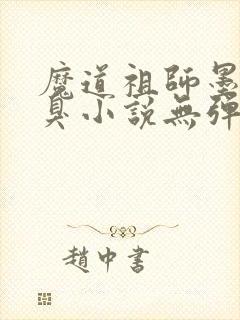 魔道祖師墨
臭小說無彈
趙中書